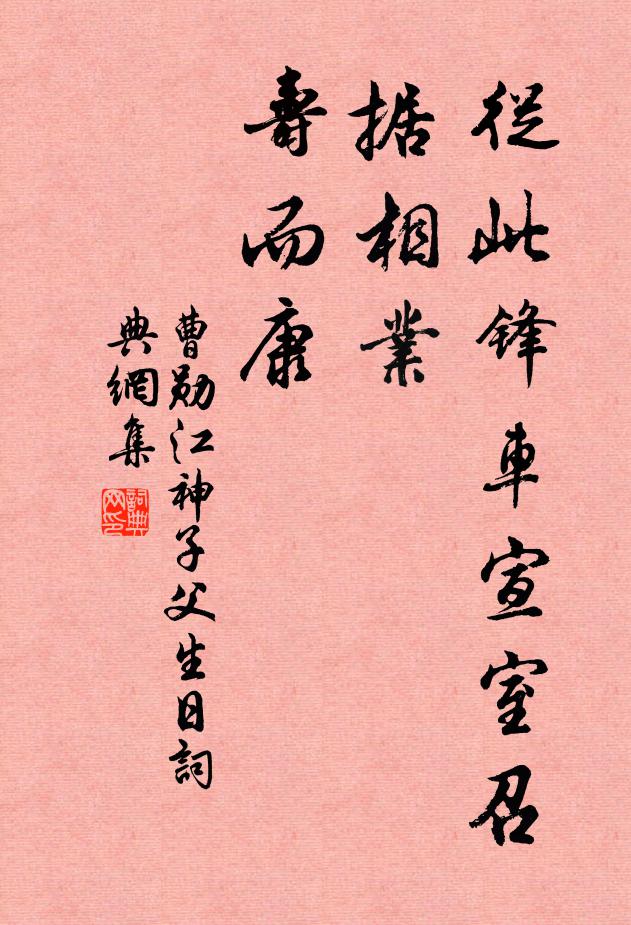 從此鋒車宣室召
据相業
壽而康
曹勛江神子父生日詞
典網集
詞典网印